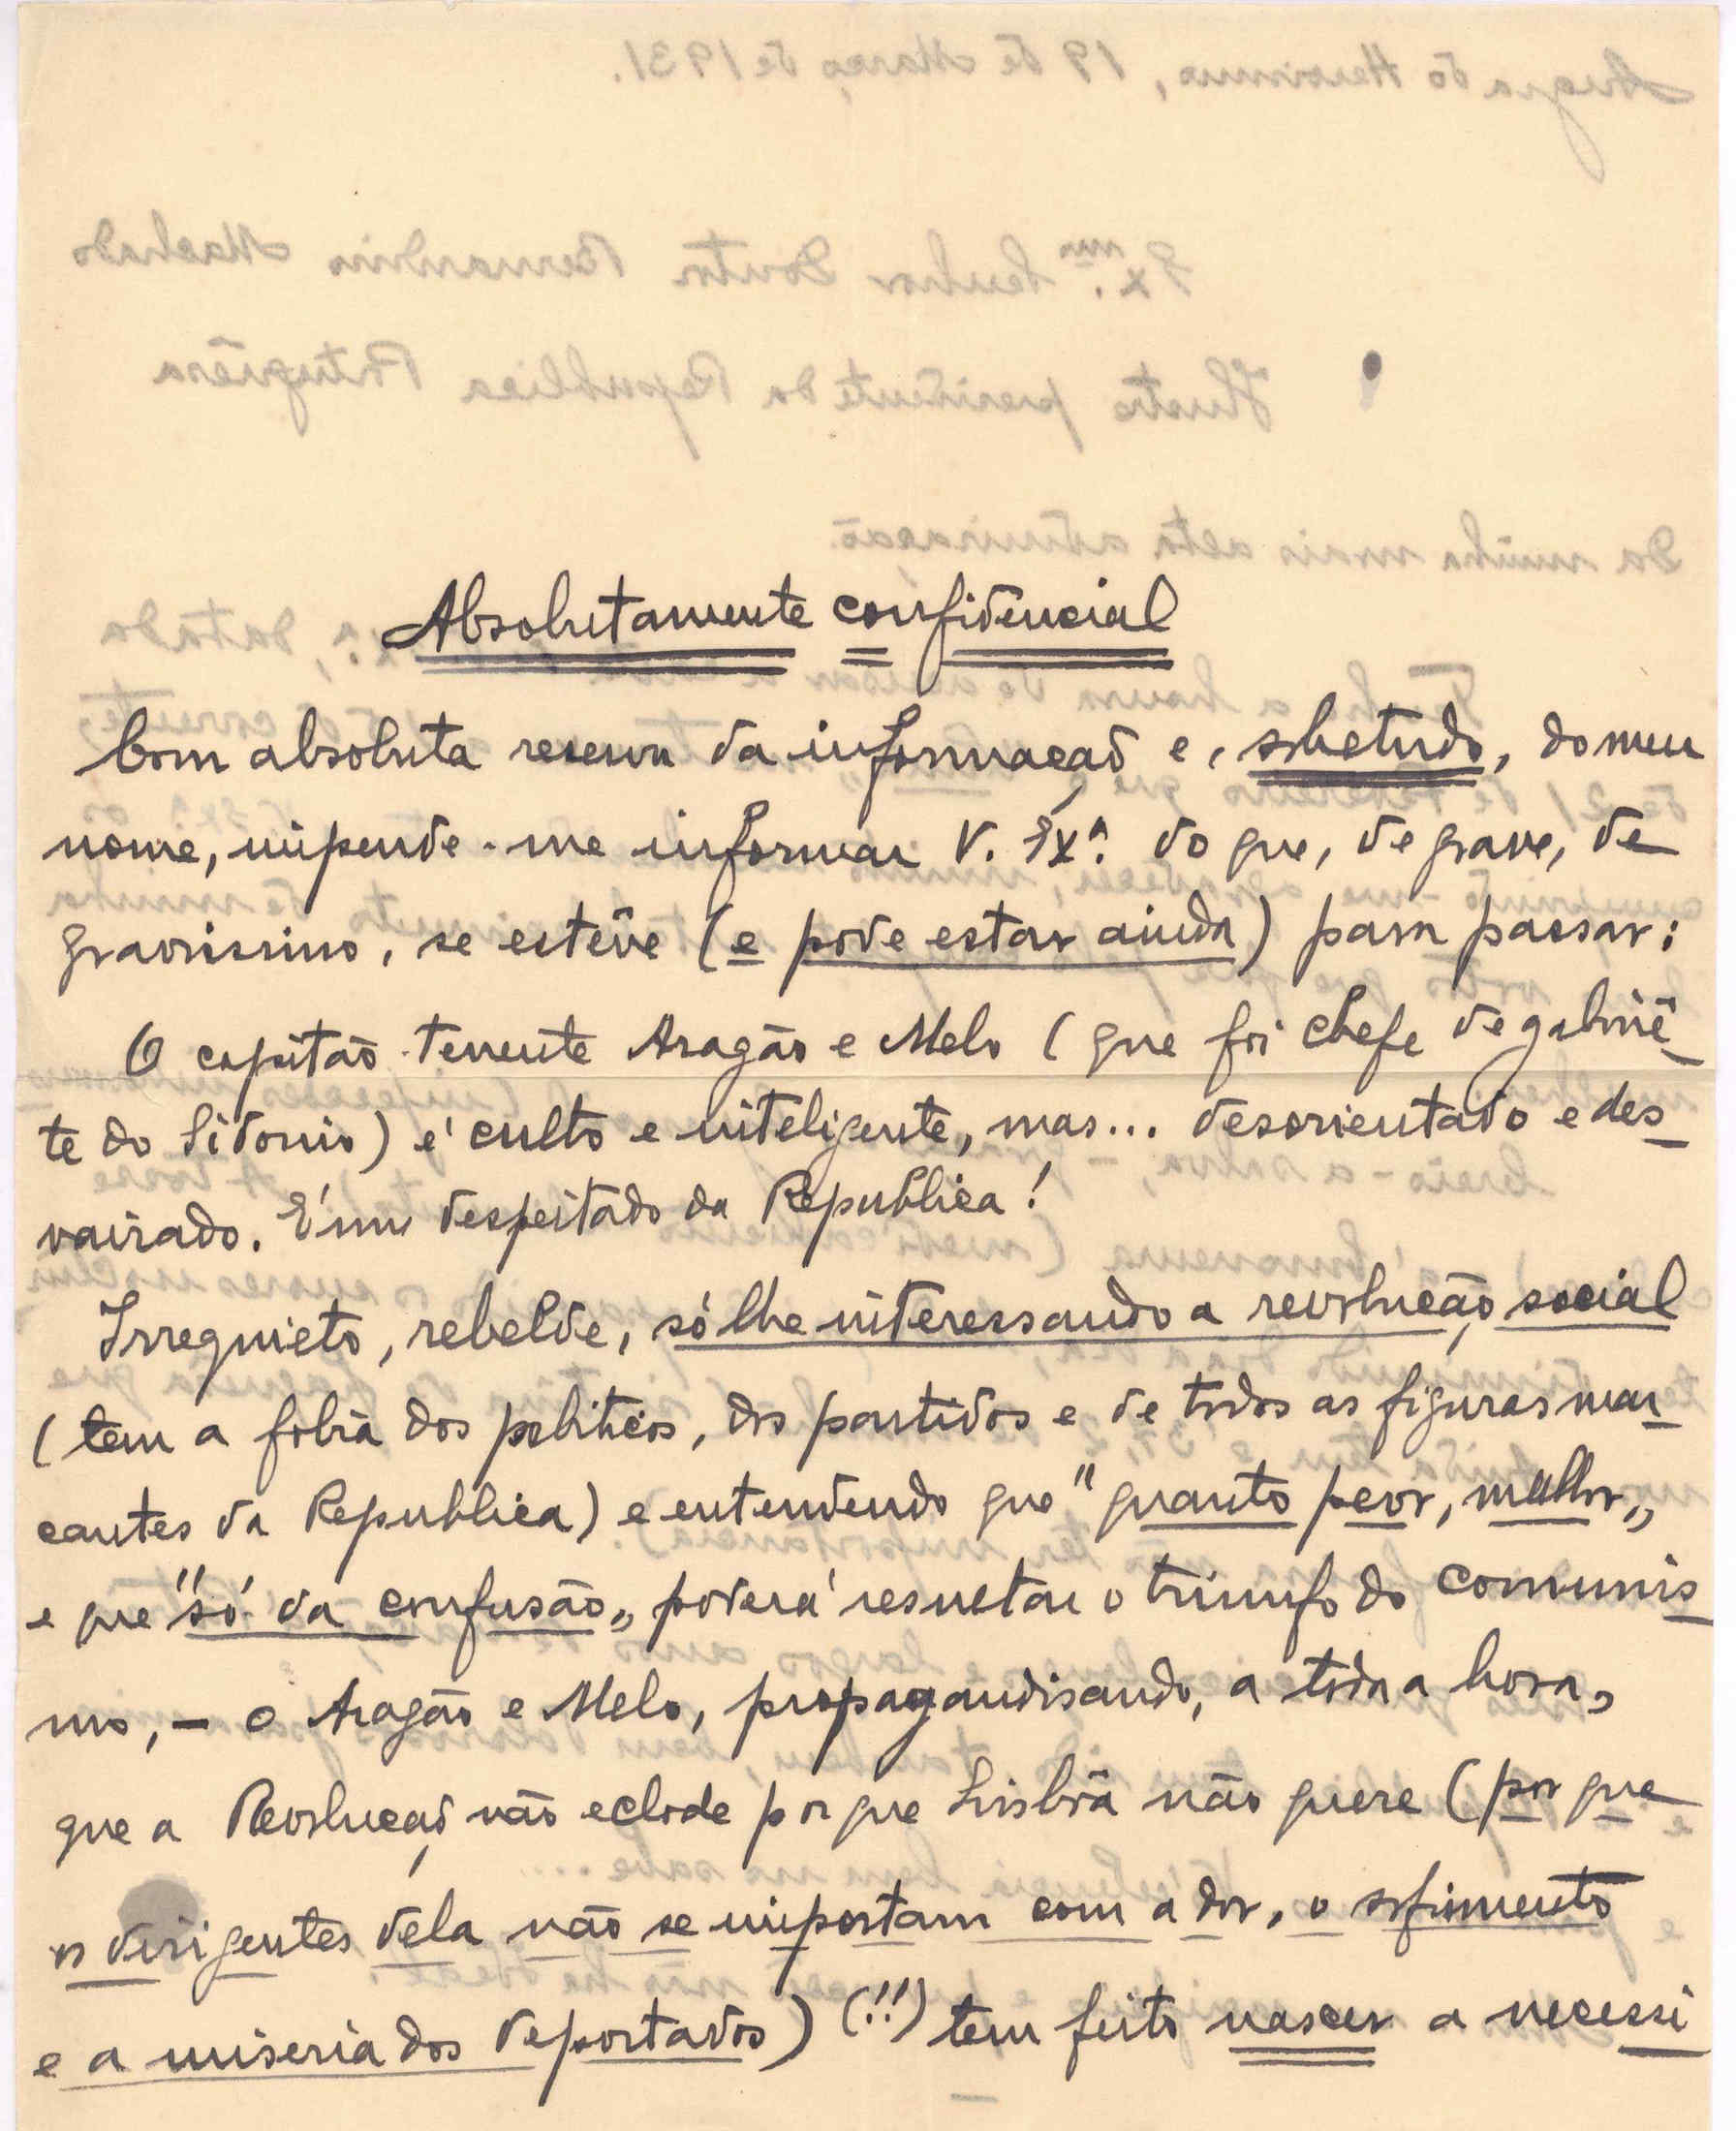 Absolutamente confidencial
Com absoluta reserva da informação e, sobretudo, do meu
nome, impende-me informar V. Exª. do que, de grave, de
gravissimo, se estêve (e pode estar ainda) para passar:
O capitão-tenente Aragão e Melo (que foi chefe de gabinê
te do Sidonio) é culto e inteligente, mas... desorientado e des
vairado. É um despeitado da Republica!
Irrequieto, rebelde, só lhe interessando a revolução social
(tem a fobia dos politicos, dos partidos e de todos as figuras mar
cantes da Republica) e entendendo que "quanto peor, melhor„
e que "só da confusão„ poderá resultar o triunfo do comunis
mo, - o Aragão e Melo, propagandisando, a toda a hora,
que a Revolução não eclode por que Lisbôa não quere (por que
os dirigentes dela não se importam com a dor, o sofrimento
e a miseria dos deportados) (!!) tem feito nascer a necessi